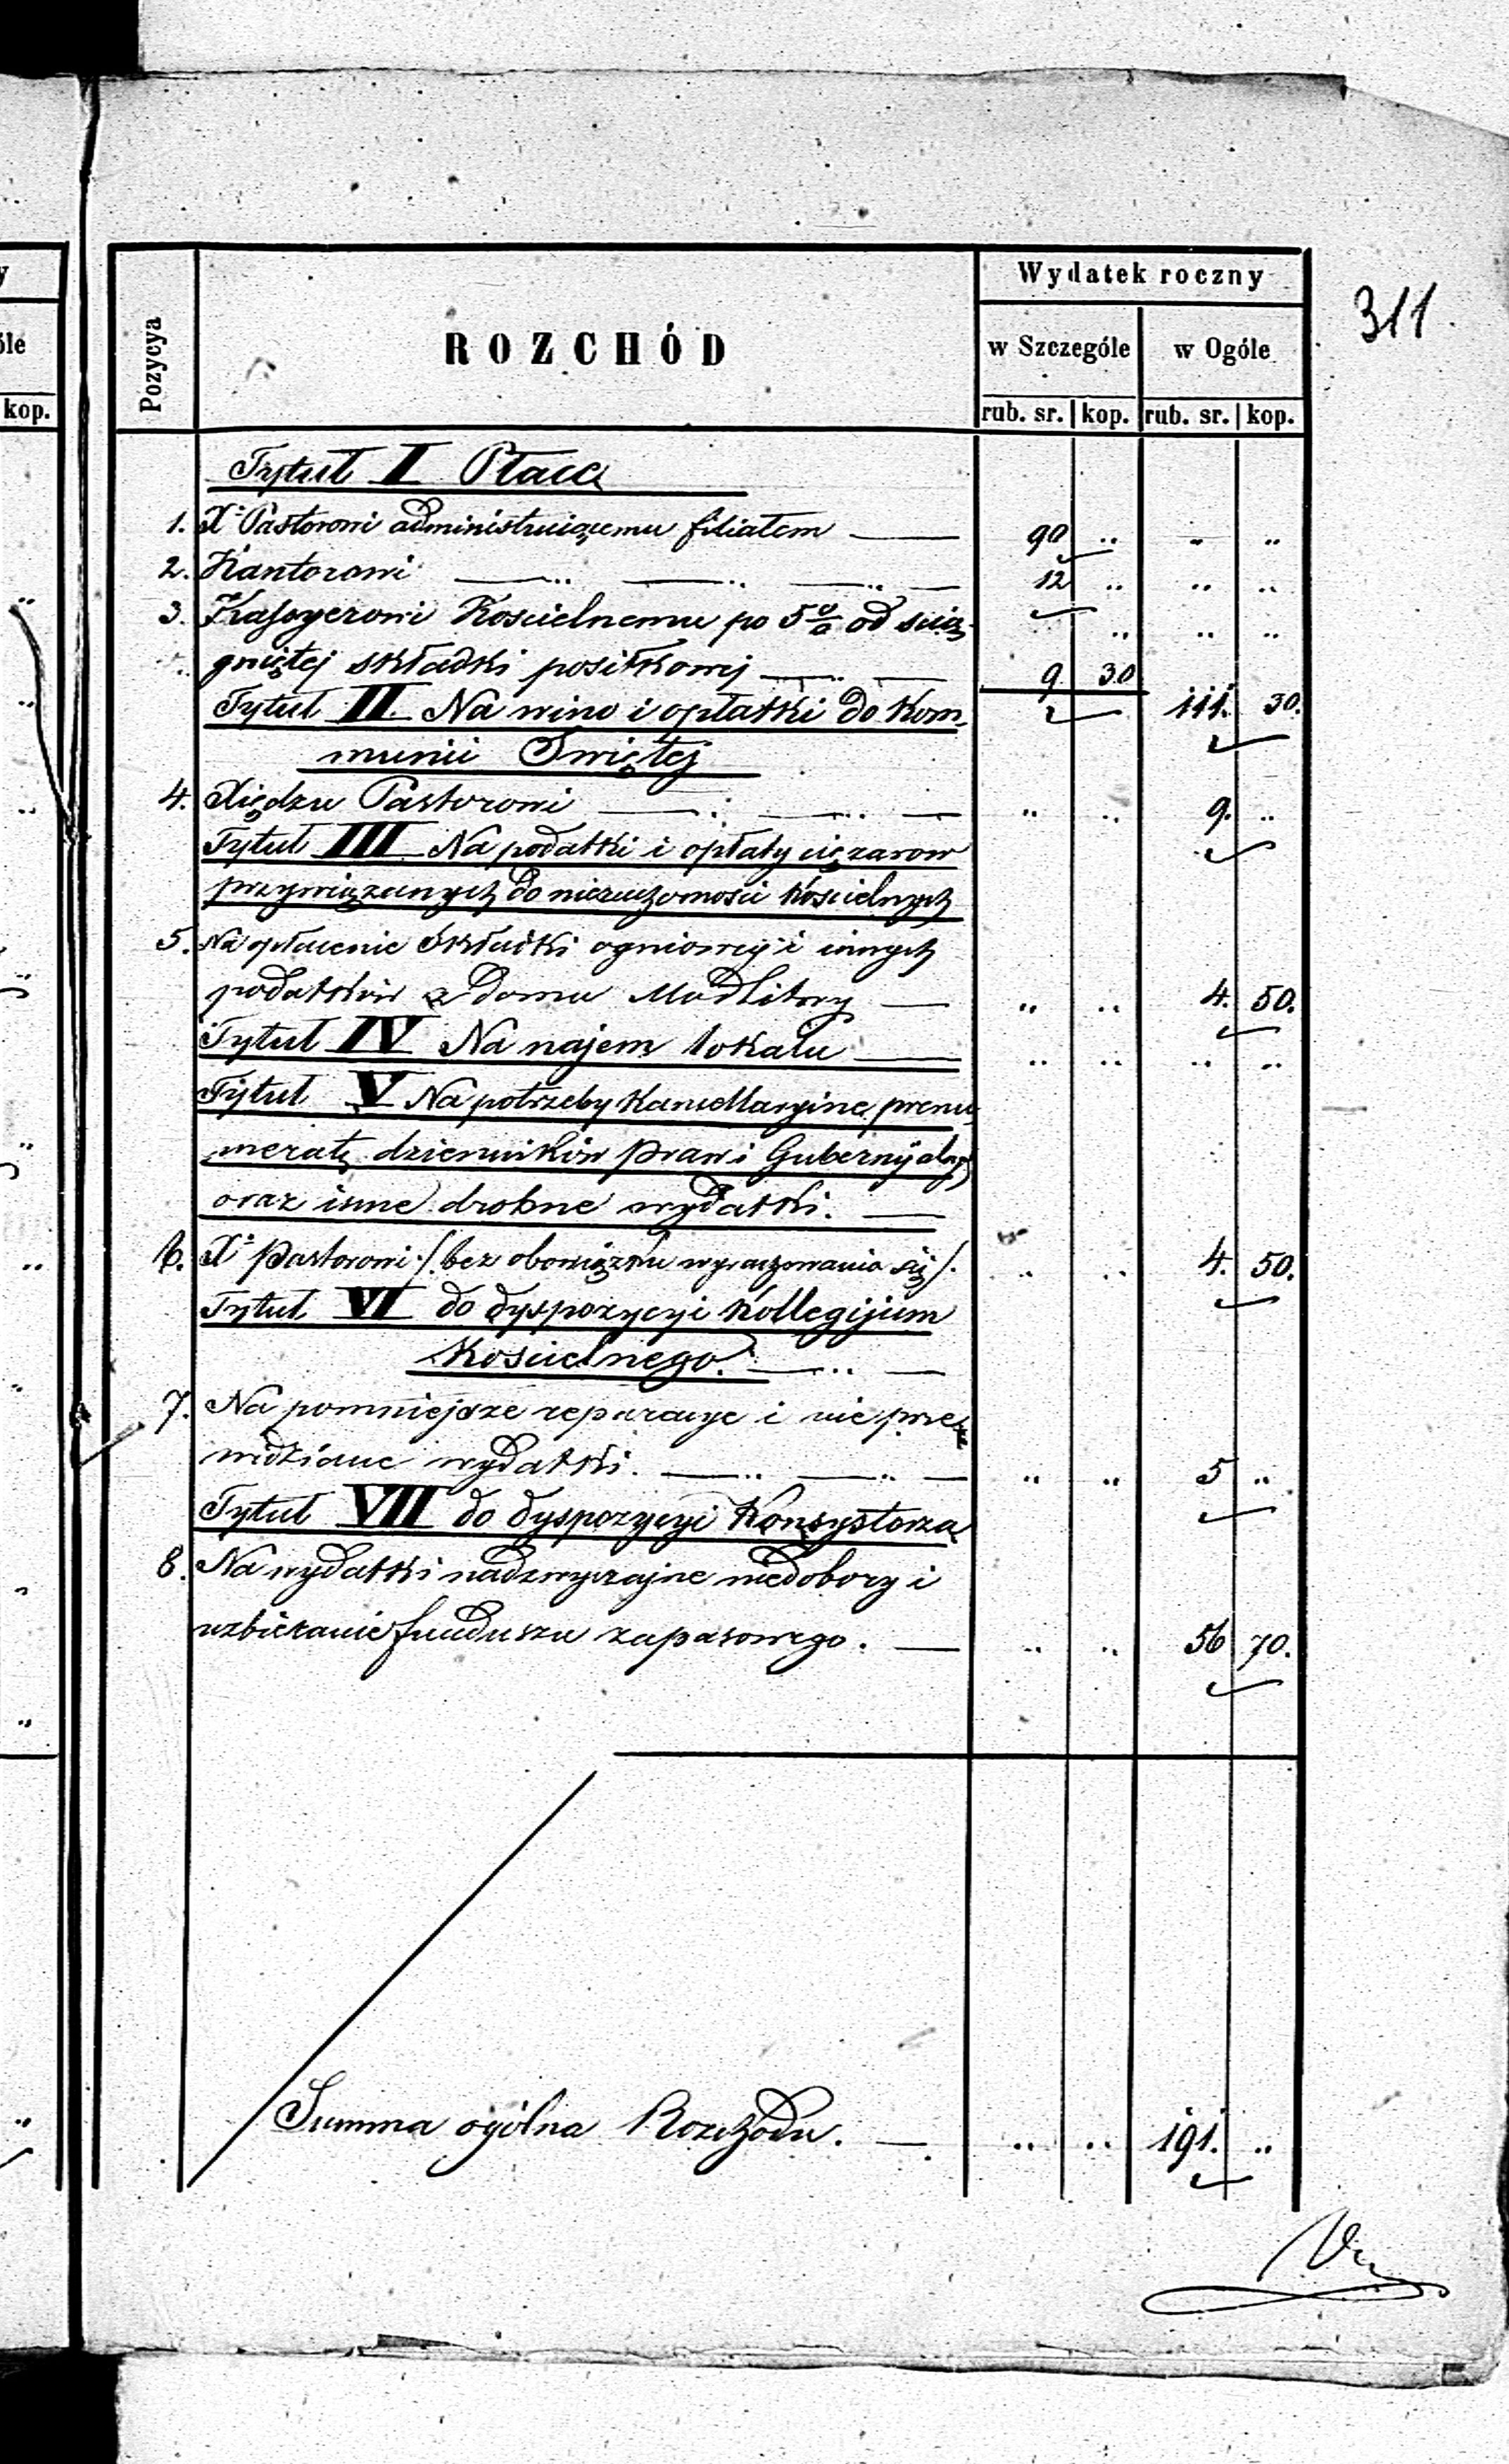 y
óle
kop.
311.
Pozycya
ROZCHÓD
Wydatek roczny
w Szczególe w Ogóle
rub. sr. kop. rub. sr. kop.
Tytuł I Płaca
1. Xu Pastorowi administruiącemu filiałem — 90 .. .. ..
2. Kantorowi — .. — .. — .. — 12 .. .. ..
3. Kassyerowi Koscielnemu po 5% od scią- .. .. ..
gniętej składki posiłkowej — .. — 9 30
Tytuł II Na wino i opłatki do Kom- 111. 30.
munii Swiętej
4. Xiędzu Pastorowi — .. — .. — .. .. 9. ..
Tytuł III Na podatki i opłaty ciężarow
przywiązanych do nieruchomości Kościelnych
5. Na opłacenie Składki ogniowej i innych
podatków z domu Modlitwy — .. .. 4. 50.
Tytuł IV Na najem lokalu — .. .. .. ..
Tytuł V Na potrzeby Kancellaryine prenu-
meratę dzienników Praw i Gubernijalnych
oraz inne drobne wydatki. —
6. Xu Pastorowi /. bez obowiązku wyrachowania się /. .. .. 4. 50.
Tytuł VI do dyspozycyi Kollegijum
Koscielnego. — .. —
7. Na pomniejsze reparacye i nie prze-
widziane wydatki. — .. — .. — .. .. 5 ..
Tytuł VII do dyspozycyi Konsystorza
8. Na wydatki nadzwyczajne niedobory i
uzbieranie funduszu zapasowego. — .. .. 56 70.
Summa ogólna Rozchodu. — .. .. 191. ..